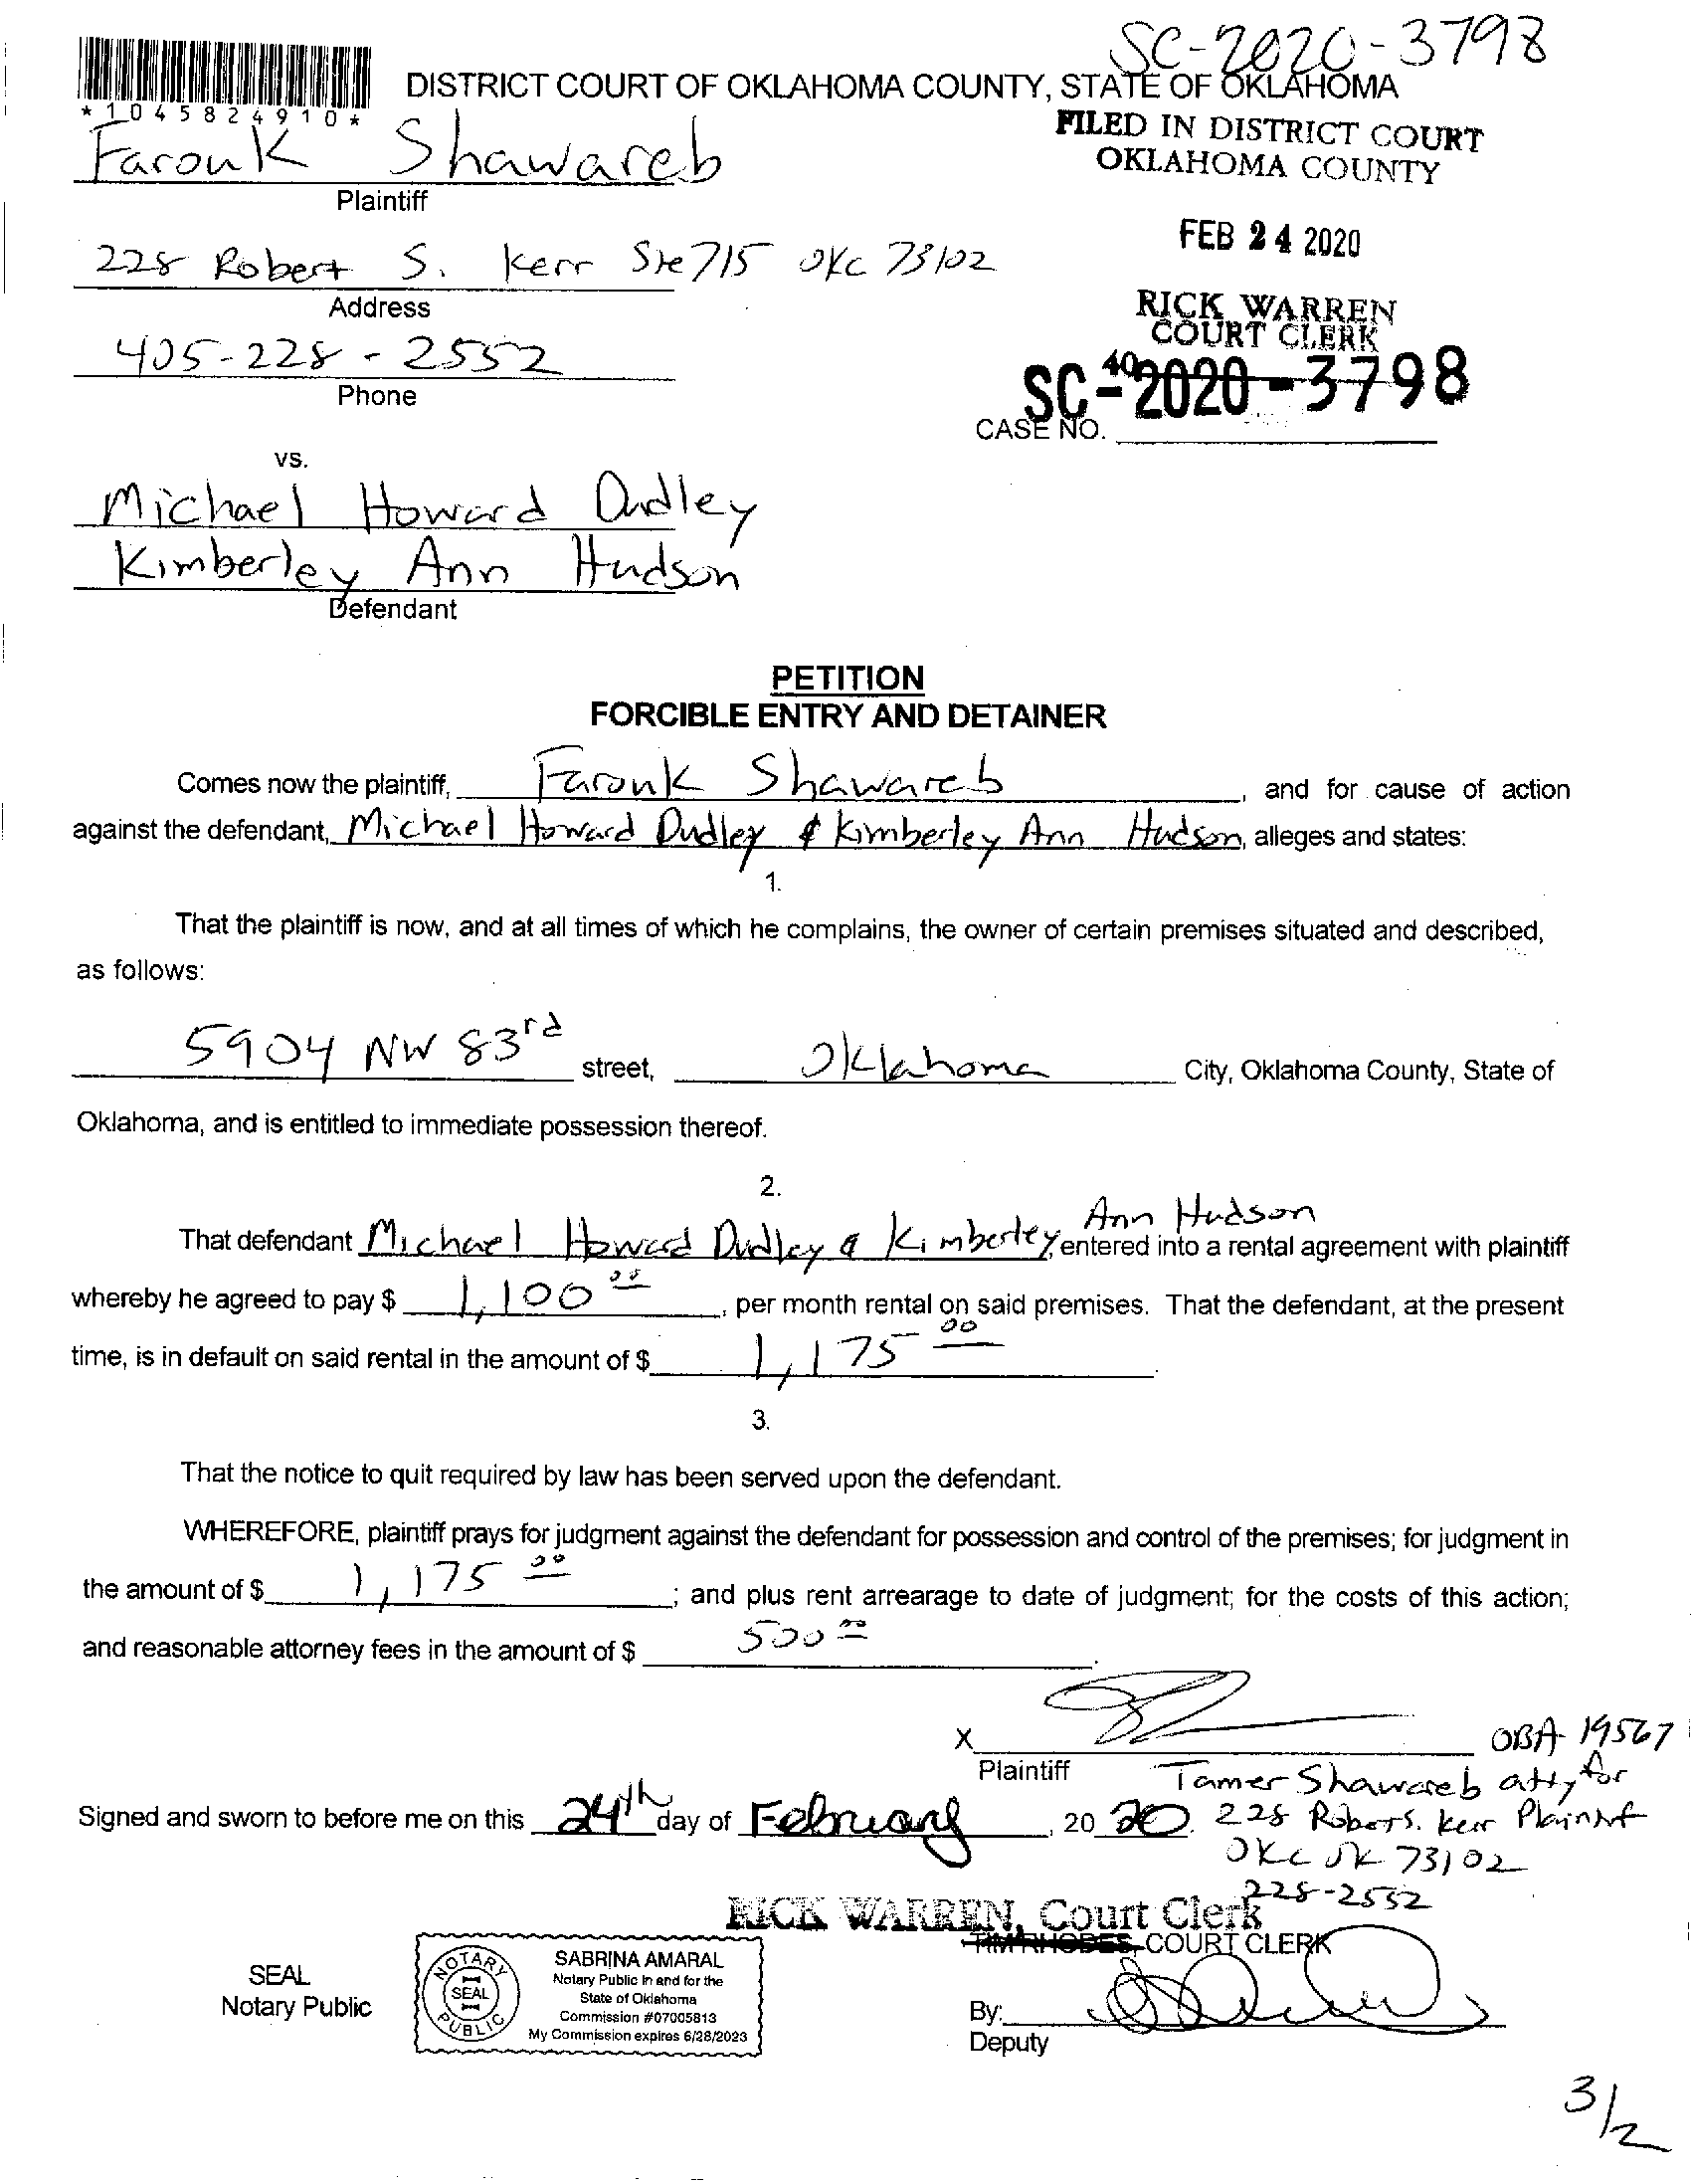 SC-2020-3798
DISTRICT COURT OF OKLAHOMA COUNTY, STATE OF OKLAHOMA
*1045824910*
FILED IN DISTRICT COURT
OKLAHOMA COUNTY
Farouk Shawareb
Plaintiff
FEB 24 2020
228 Robert S. Kerr Ste 715 OKC 73102
Address
RICK WARREN
COURT CLERK
405-228-2552
Phone
40
SC-2020-3798
CASE NO.
vs.
Michael Howard Dudley
Kimberley Ann Hudson
Defendant
PETITION
FORCIBLE ENTRY AND DETAINER
Comes now the plaintiff, Farouk Shawareb, and for cause of action
against the defendant, Michael Howard Dudley & Kimberley Ann Hudson, alleges and states:
1.
That the plaintiff is now, and at all times of which he complains, the owner of certain premises situated and described,
as follows:
5904 NW 83rd street, Oklahoma City, Oklahoma County, State of
Oklahoma, and is entitled to immediate possession thereof.
2.
Ann Hudson
That defendant Michael Howard Dudley & Kimberley, entered into a rental agreement with plaintiff
whereby he agreed to pay $ 1,100 00, per month rental on said premises. That the defendant, at the present
time, is in default on said rental in the amount of $ 1,175 00.
3.
That the notice to quit required by law has been served upon the defendant.
WHEREFORE, plaintiff prays for judgment against the defendant for possession and control of the premises; for judgment in
the amount of $ 1,175 00; and plus rent arrearage to date of judgment; for the costs of this action;
and reasonable attorney fees in the amount of $ 500 00.
X OBA 19567
Plaintiff Tamer Shawareb atty for
Signed and sworn to before me on this 24th day of February, 2020. 228 Robert S. Kerr Plaintiff
OKC OK 73102
228-2552
RICK WARREN, Court Clerk
TIM RHODES, COURT CLERK
SEAL
Notary Public
NOTARY PUBLIC
SEAL
SABRINA AMARAL
Notary Public in and for the
State of Oklahoma
Commission #07005813
My Commission expires 6/28/2023
By:
Deputy
3/2